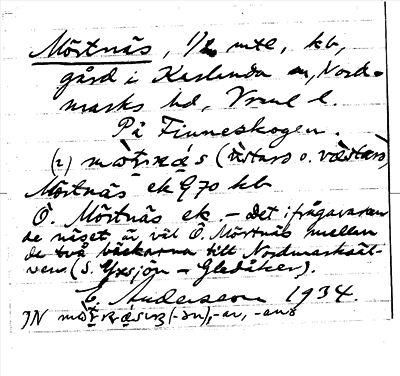 Mörtnäs, 1/2 mtl, kb,
gård i Karlanda sn, Nord-
marks hd, Vrml l.
På Finneskogen.
(2) (östars o. västars)
Mörtnäs ek G 70 kb
Ö. Mörtnäs ek. – Det ifrågavaran
de näset är väl Ö. Mörtnäs mellan
de två väckarna till Nordmarksäl-
ven (S. Yxsjön – Gledåker).
E. Anderson 1934.
IN (-ən), -ar, -ans